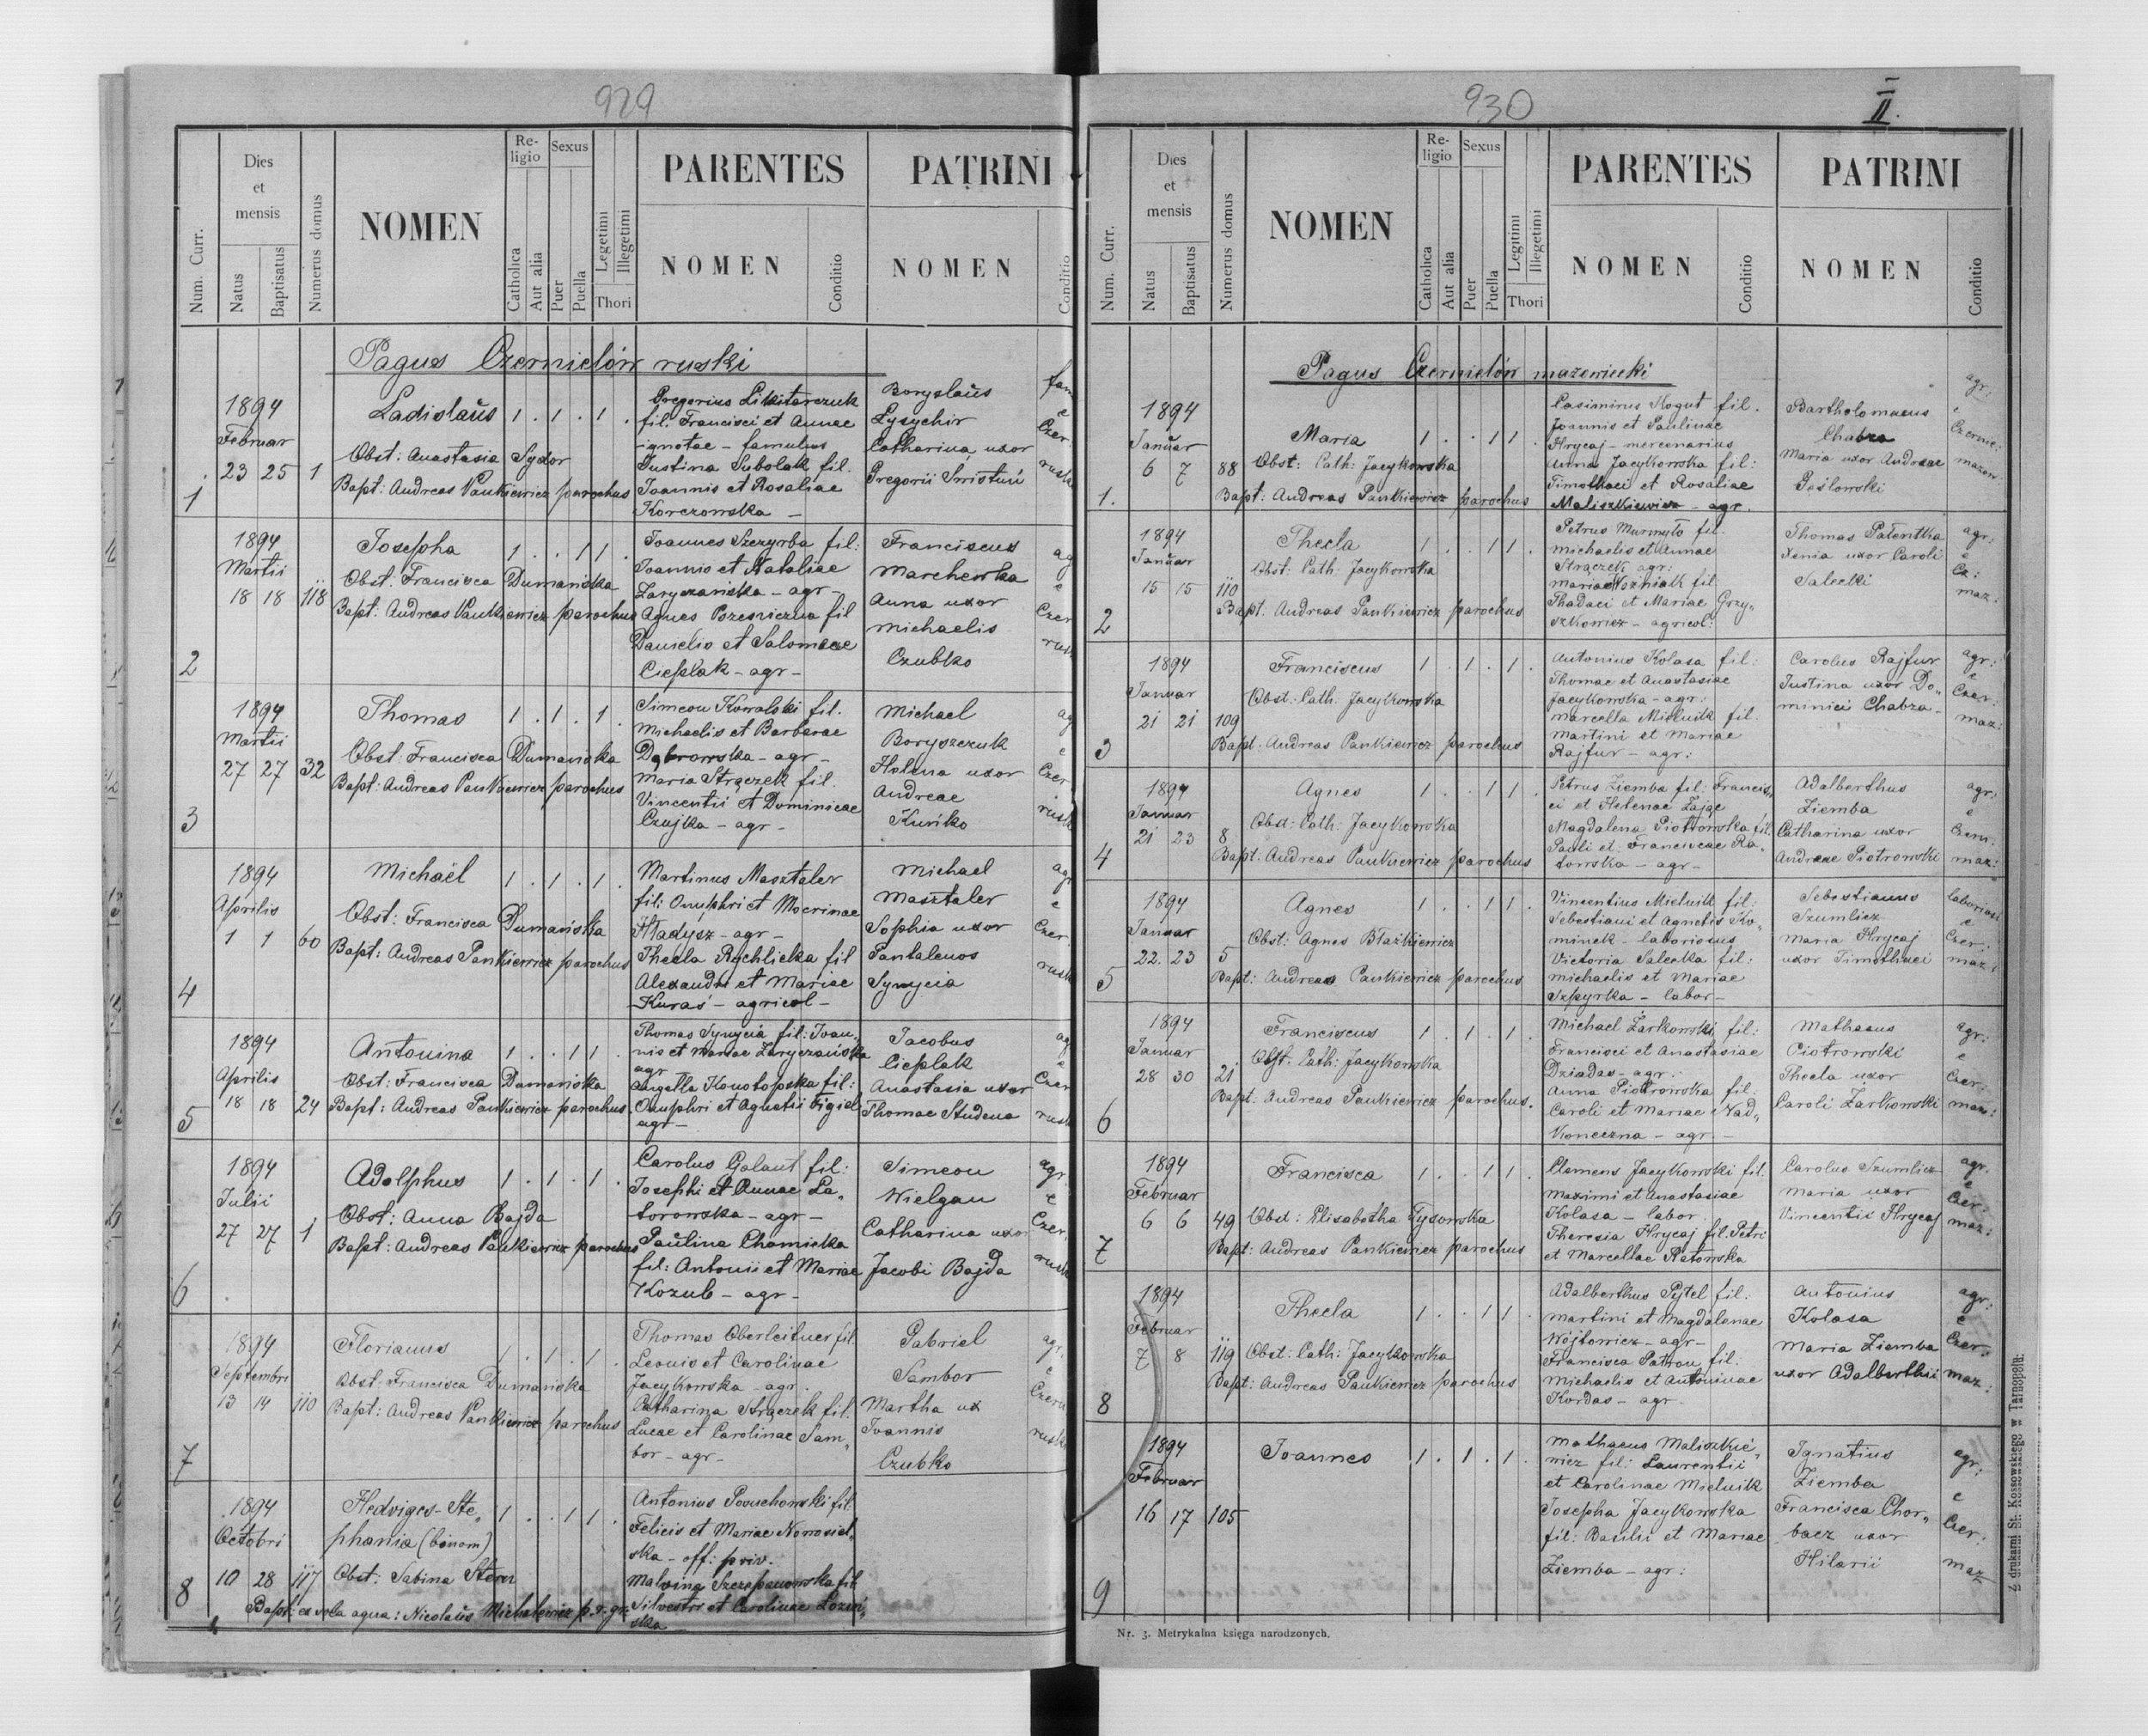 929
Num. Curr.
Dies et mensis
Natus
Baptisatus
Numerus domus
NOMEN
Re-
ligio
Catholica
Aut alia
Sexus
Puer
Puella
Legetimi
Illegetimi
Thori
PARENTES
NOMEN
Conditio
PATRINI
NOMEN
Conditio
Pagus Czernielów ruski
1
1894
Februar
23 25 1
Ladislaus 1 . 1 . 1 .
Obst: Anastasia Sydor
Bapt: Andreas Pankiewicz parochus
Gregorius Likitarczuk
fil: Francisci et Annae
ignotae - famulus
Justina Subolak fil.
Joannis et Rosaliae
Korczowska -
Boryslaus
Lysychir
Catharina uxor
Gregorii
fam
e
Czer
rusk
2
1894
Martii
18 18 118
Josepha 1 . . 1 1 .
Obst: Francisca Dumańska
Bapt: Andreas Pankiewicz parochus
Joannes Szczyrba fil:
Joannis et Nataliae
Zaryczańska - agr -
Agnes fil
Danielis et Salomeae
Cieplak - agr -
Franciscus
Marchewka
Anna uxor
Michaelis
Czubko
ag
e
Czer
rusk
3
1894
Martii
27 27 32
Thomas 1 . 1 . 1 .
Obst: Francisca Dumańska
Bapt: Andreas Pankiewicz parochus
Simeon Kowalski fil.
Michaelis et Barbarae
Dąbrowska - agr -
Maria Strączek fil.
Vincentii et Dominicae
Czujka - agr -
Michael
Boryszczuk
Helena uxor
Andreae
Kuńko
ag
e
Czer
rusk
4
1894
Aprilis
1 1 60
Michaël 1 . 1 . 1 .
Obst: Francisca Dumańska
Bapt: Andreas Pankiewicz parochus
Martinus Masztaler
fil: Onuphri et Mocrinae
Hładysz - agr -
Thecla Rychlicka fil
Alexandri et Mariae
Kuraś - agricol -
Michael
Masztaler
Sophia uxor
Pantaleuos
Synycia
agr
e
Czer.
rusk
5
1894
Aprilis
18 18 24
Antonina 1 . . 1 1 .
Obst: Francisca Dumańska
Bapt: Andreas Pankiewicz parochus.
Thomas Synycia fil: Joan„
nis et Mariae Zaryczańska
agr
Angella Konotopska fil:
Onuphri et Agnetis Figiel
agr -
Jacobus
Cieplak
Anastasia uxor
Thomae Studena
ag
e
Czer
rusk
6
1894
Julii
27 27 1
Adolphus 1 . 1 . 1 .
Obst: Anna Bajda
Bapt: Andreas Pankiewicz parochus
Carolus Galant fil:
Josephi et Annae La„
torowska - agr -
Paulina Chamicka
fil: Antonii et Mariae
Kozub - agr -
Simeon
Wielgan
Catharina uxor
Jacobi Bajda
agr.
e
Czer.
rusk
7
1894
Septembri
13 14 110
Florianus 1 . 1 . 1 .
Obst: Francisca Dumańska
Bapt: Andreas Pankiewicz parochus
Thomas Oberleitner fil.
Leonis et Carolinae
Jacykowska - agr.
Catharina Strączek fil.
Lucae et Carolinae Sam„
bor - agr -
Gabriel
Sambor
Martha ux
Joannis
Czubko
agr.
e
Czern
rusk
8
1894
Octobri
10 28 117
Hedviges-Ste„
phania (binom) 1 . . 1 1 .
Obst: Sabina Stern
Bapt: ex sola aqua: Nicolaus Michalewicz p. r. gr.
Antonius fil.
Felicis et Mariae Nowosiel„
ska - off: priv.
Malvina Szczepanowska fil.
Silvestri et Carolinae Łoziń„
ska
930
II.
Num. Curr.
Dies et mensis
Natus
Baptisatus
Numerus domus
NOMEN
Re-
ligio
Catholica
Aut alia
Sexus
Puer
Puella
Legitimi
Illegetimi
Thori
PARENTES
NOMEN
Conditio
PATRINI
NOMEN
Conditio
Pagus Czernielów mazowiecki
1.
1894
Januar
6 7 88
Maria 1 . . 1 1 .
Obst: Cath: Jacykowska
Bapt: Andreas Pankiewicz parochus
Casimirus Kogut fil.
Joannis et Paulinae
Hrycaj - mercenarius
Anna Jacykowska fil:
Timothaei et Rosaliae
Maliszkiewicz - agr.
Bartholomaeus
Chabza
Maria uxor Andreae
agr.
e
Czernie:
mazow
2
1894
Januar
15 15 110
Thecla 1 . . 1 1 .
Obst: Cath: Jacykowska
Bapt: Andreas Pankiewicz parochus
Petrus Murmyło fil.
Michaelis et Annae
Strączek agr:
Maria Woźniak fil.
Thadaei et Mariae Grzy„
szkowicz - agricol:
Thomas Patentka
Xenia uxor Caroli
Salecki
agr:
e
Cz:
maz:
3
1894
Januar
21 21 109
Franciscus 1 . 1 . 1 .
Obst: Cath: Jacykowska
Bapt: Andreas Pankiewicz parochus
Antonius Kolasa fil:
Thomae et Anastasiae
Jacykowska - agr:
Marcella Mielnik fil.
Martini et Mariae
Rajfur - agr:
Carolus Rajfur
Justina uxor Do„
minici Chabza -
agr:
e
Czer:
maz:
4
1894
Januar
21 23 8
Agnes 1 . . 1 1 .
Obst: Cath: Jacykowska
Bapt: Andreas Pankiewicz parochus
Petrus Ziemba fil: Francis„
ci et Helenae Zając
Magdalena Piotrowska fil.
Pauli et Franciscae Ra„
towska - agr -
Adalberthus
Ziemba
Catharina uxor
Andreae Piotrowski
agr:
e
Czern:
maz:
5
1894
Januar
22 23 5
Agnes 1 . . 1 1 .
Obst: Agnes Błażkiewicz
Bapt: Andreas Pankiewicz parochus
Vincentius Mielnik fil:
Sebestiani et Agnetis Ko„
minek - laboriosus
Victoria Salecka fil:
Michaelis et Mariae
Szpyrka - labor -
Sebestianus
Szumlicz
Maria Hrycaj
uxor Timothaei
laboriosi
e
Czer:
maz:
6
1894
Januar
28 30 21
Franciscus 1 . 1 . 1 .
Obst: Cath: Jacykowska
Bapt: Andreas Pankiewicz parochus.
Michael Żarkowski fil:
Francisci et Anastasiae
Dziadas - agr:
Anna Piotrowska fil.
Caroli et Mariae Nad„
koneczna - agr -
Mathaeus
Piotrowski
Thecla uxor
Caroli Żarkowski
agr:
e
Czer:
maz:
7
1894
Februar
6 6 49
Francisca 1 . . 1 1 .
Obst: Elisabetha Tysowska
Bapt: Andreas Pankiewicz parochus
Clemens Jacykowski fil:
Maximi et Anastasiae
Kolasa - labor
Theresia Hrycaj fil. Petri
et Marcellae Ratowska
Carolus Szumlicz
Maria uxor
Vincentii Hrycaj
agr.
e
Czer:
maz:
8
1894
Februar
7 8 119
Thecla 1 . . 1 1 .
Obst: Cath: Jacykowska
Bapt: Andreas Pankiewicz parochus
Adalberthus Pytel fil:
Martini et Magdalenae
Wójtowicz - agr -
Francisca Patron fil:
Michaelis et Antoninae
Kordas - agr
Antonius
Kolasa
Maria Ziemba
uxor Adalberthii
agr:
e
Czer:
maz:
9
1894
Februar
16 17 105
Joannes 1 . 1 . 1 .
Mathaeus Maliszkie„
wicz fil: Laurentii
et Carolinae Mielnik
Josepha Jacykowska
fil: Basilii et Mariae
Ziemba - agr:
Ignatius
Ziemba
Francisca Chor„
bacz uxor
Hilarii
agr:
e
Czer:
maz
Nr. 3. Metrykalna księga narodzonych.
Z drukarni St. Kossowskiego w Tarnopolu.